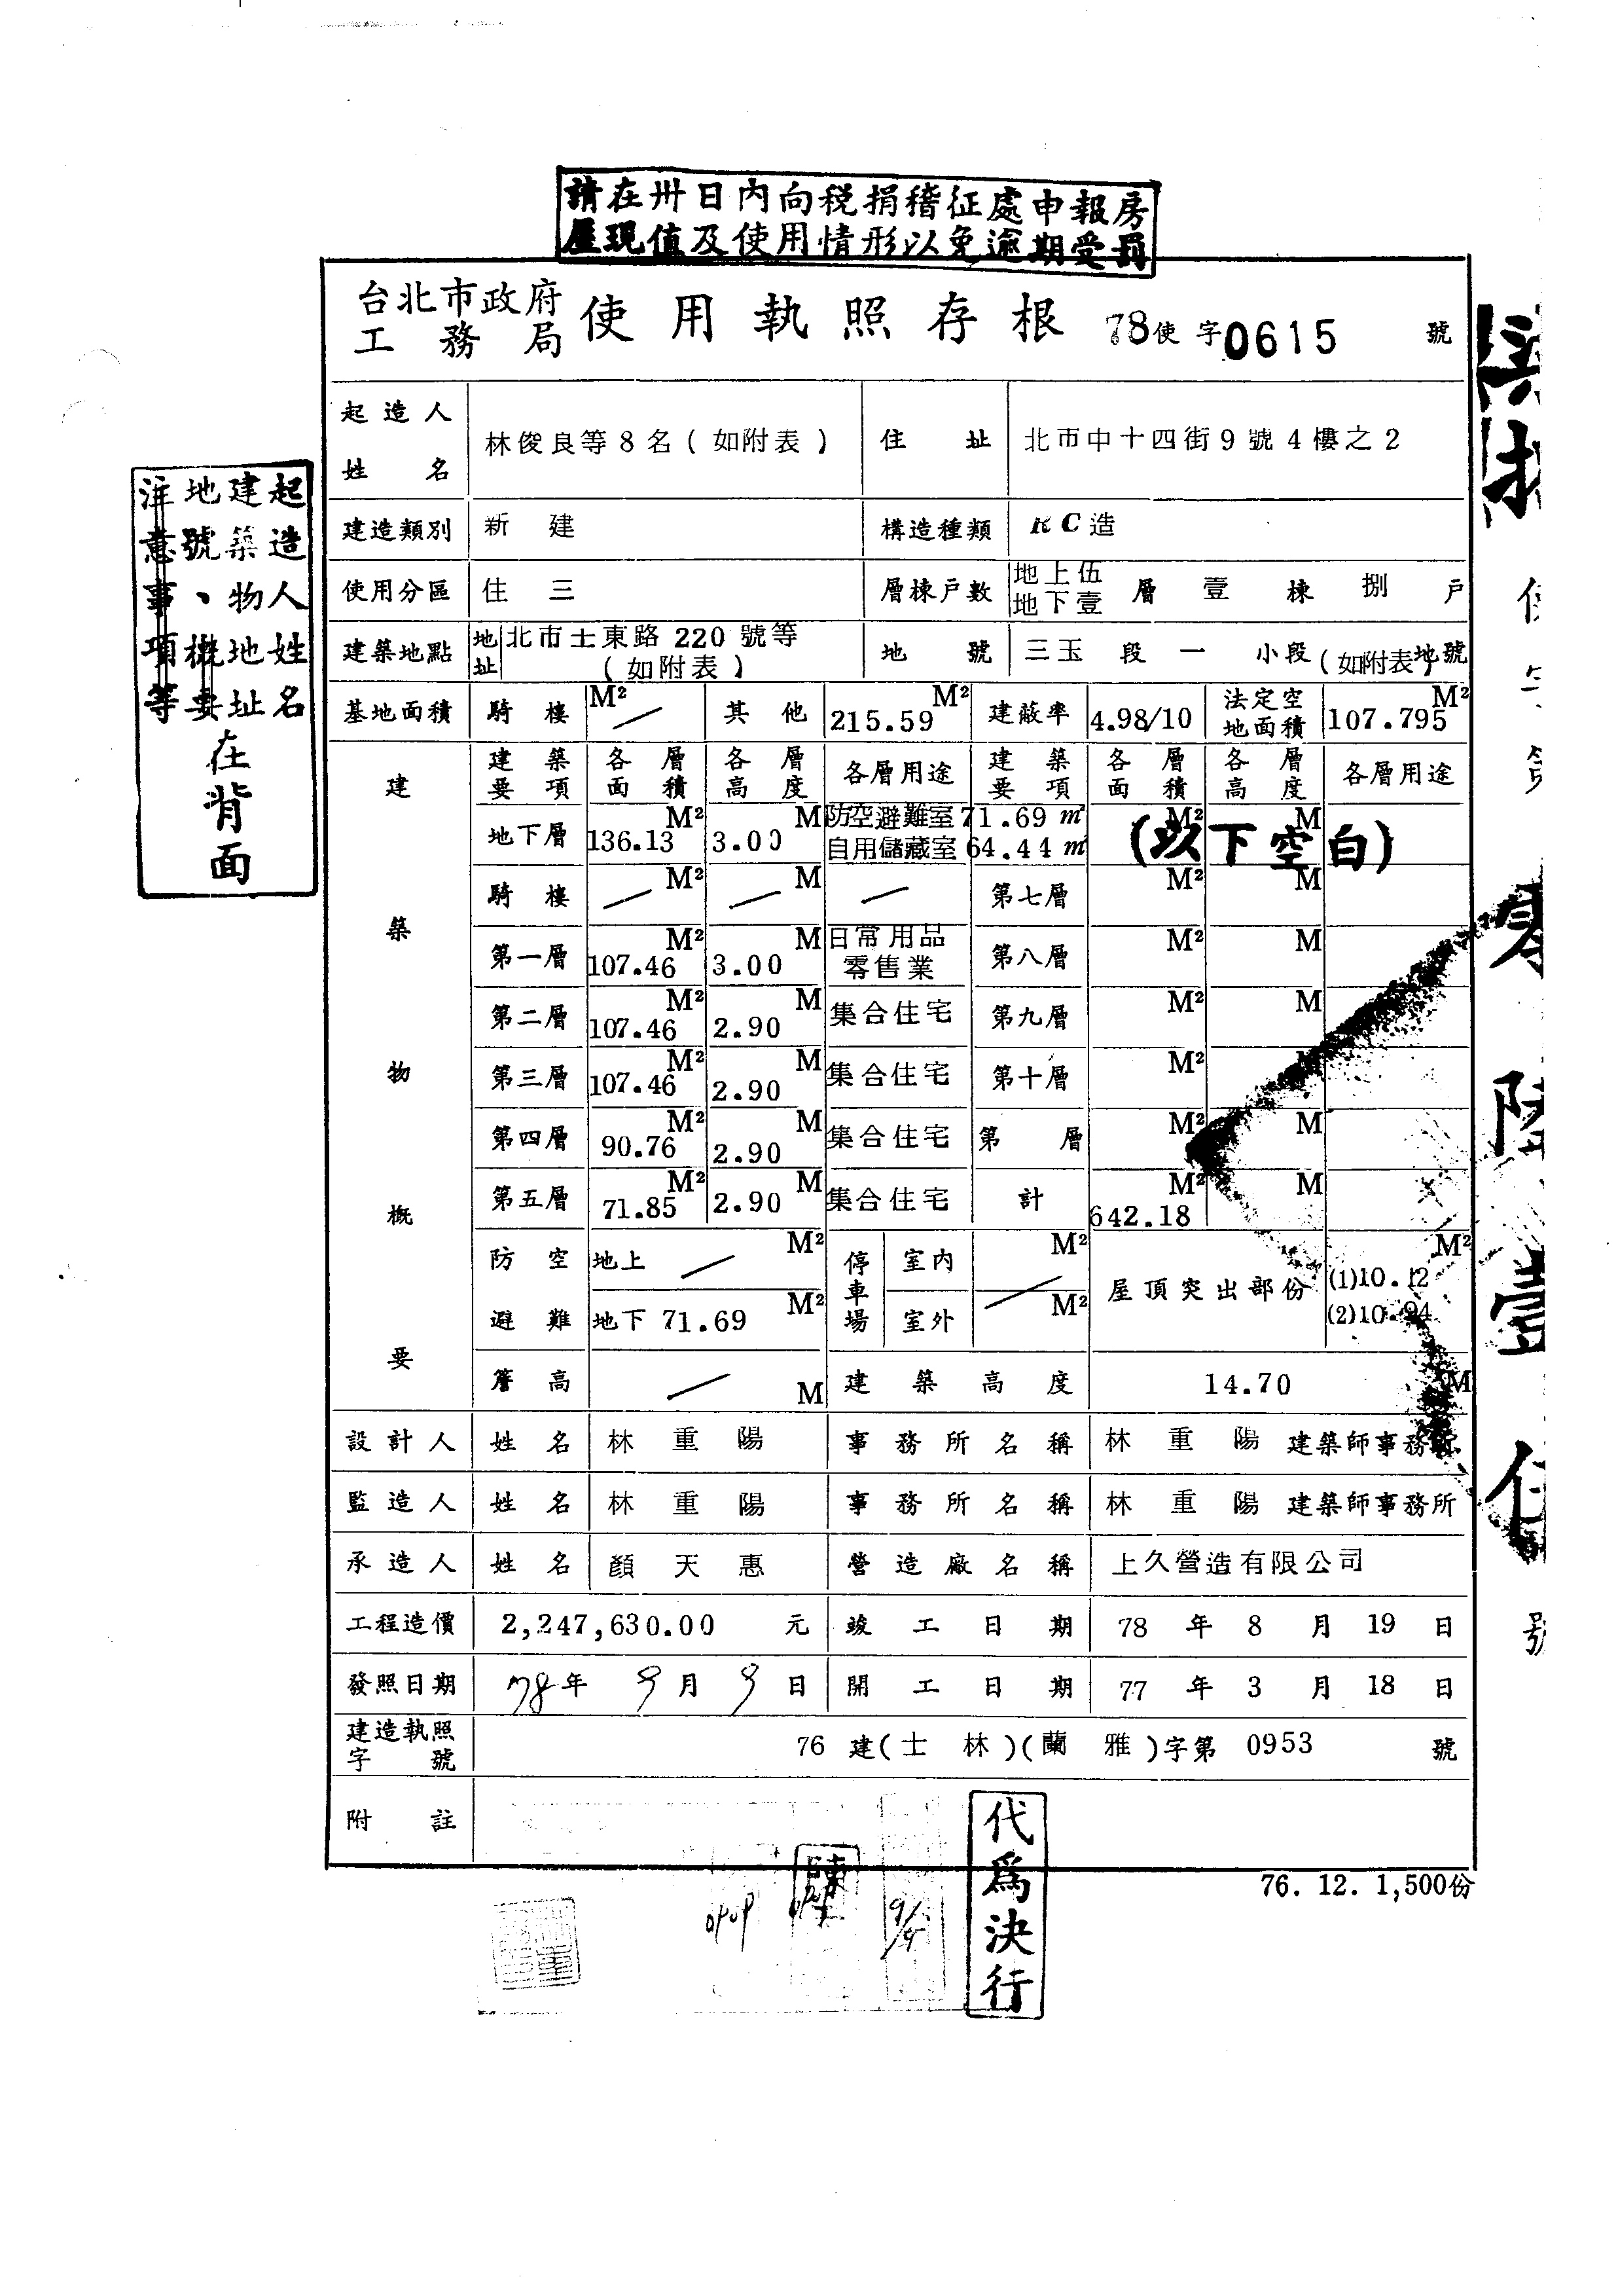 請在卅日內向稅捐稽征處申報房
屋現值及使用情形以免逾期受罰
台北市政府
工務局
使用執照存根 78使字0615號
起造人姓名 林俊良等8名(如附表) 住址 北市中十四街9號4樓之2
建造類別 新建 構造種類 RC造
使用分區 住三 層棟戶數 地上伍 地下壹 層 壹 棟 捌 戶
建築地點 地址 北市士東路220號等(如附表) 地號 三玉段一小段(如附表)地號
基地面積 騎樓 M² ／ 其他 215.59 M² 建蔽率 4.98/10 法定空地面積 107.795 M²
建築物概要
建築要項 各層面積 各層高度 各層用途 建築要項 各層面積 各層高度 各層用途
地下層 136.13 M² 3.00 M 防空避難室71.69㎡ 自用儲藏室64.44㎡ M² M (以下空白)
騎樓 ／ M² ／ M ／ 第七層 M² M
第一層 107.46 M² 3.00 M 日常用品零售業 第八層 M² M
第二層 107.46 M² 2.90 M 集合住宅 第九層 M² M
第三層 107.46 M² 2.90 M 集合住宅 第十層 M²
第四層 90.76 M² 2.90 M 集合住宅 第 層 M² M
第五層 71.85 M² 2.90 M 集合住宅 計 642.18 M² M
防空避難 地上 ／ M² 停車場 室內 M² 屋頂突出部份 (1)10.12 M²
地下 71.69 M² 室外 ／ M² (2)10.94
簷高 ／ M 建築高度 14.70 M
設計人 姓名 林重陽 事務所名稱 林重陽 建築師事務所
監造人 姓名 林重陽 事務所名稱 林重陽 建築師事務所
承造人 姓名 顏天惠 營造廠名稱 上久營造有限公司
工程造價 2,247,630.00 元 竣工日期 78年8月19日
發照日期 78年9月9日 開工日期 77年3月18日
建造執照字號 76建(士林)(蘭雅)字第0953號
附註
76. 12. 1,500份
代為決行
陳
起造人姓名
建築物地址
地號、概要
注意事項等
在背面
零陸壹
號